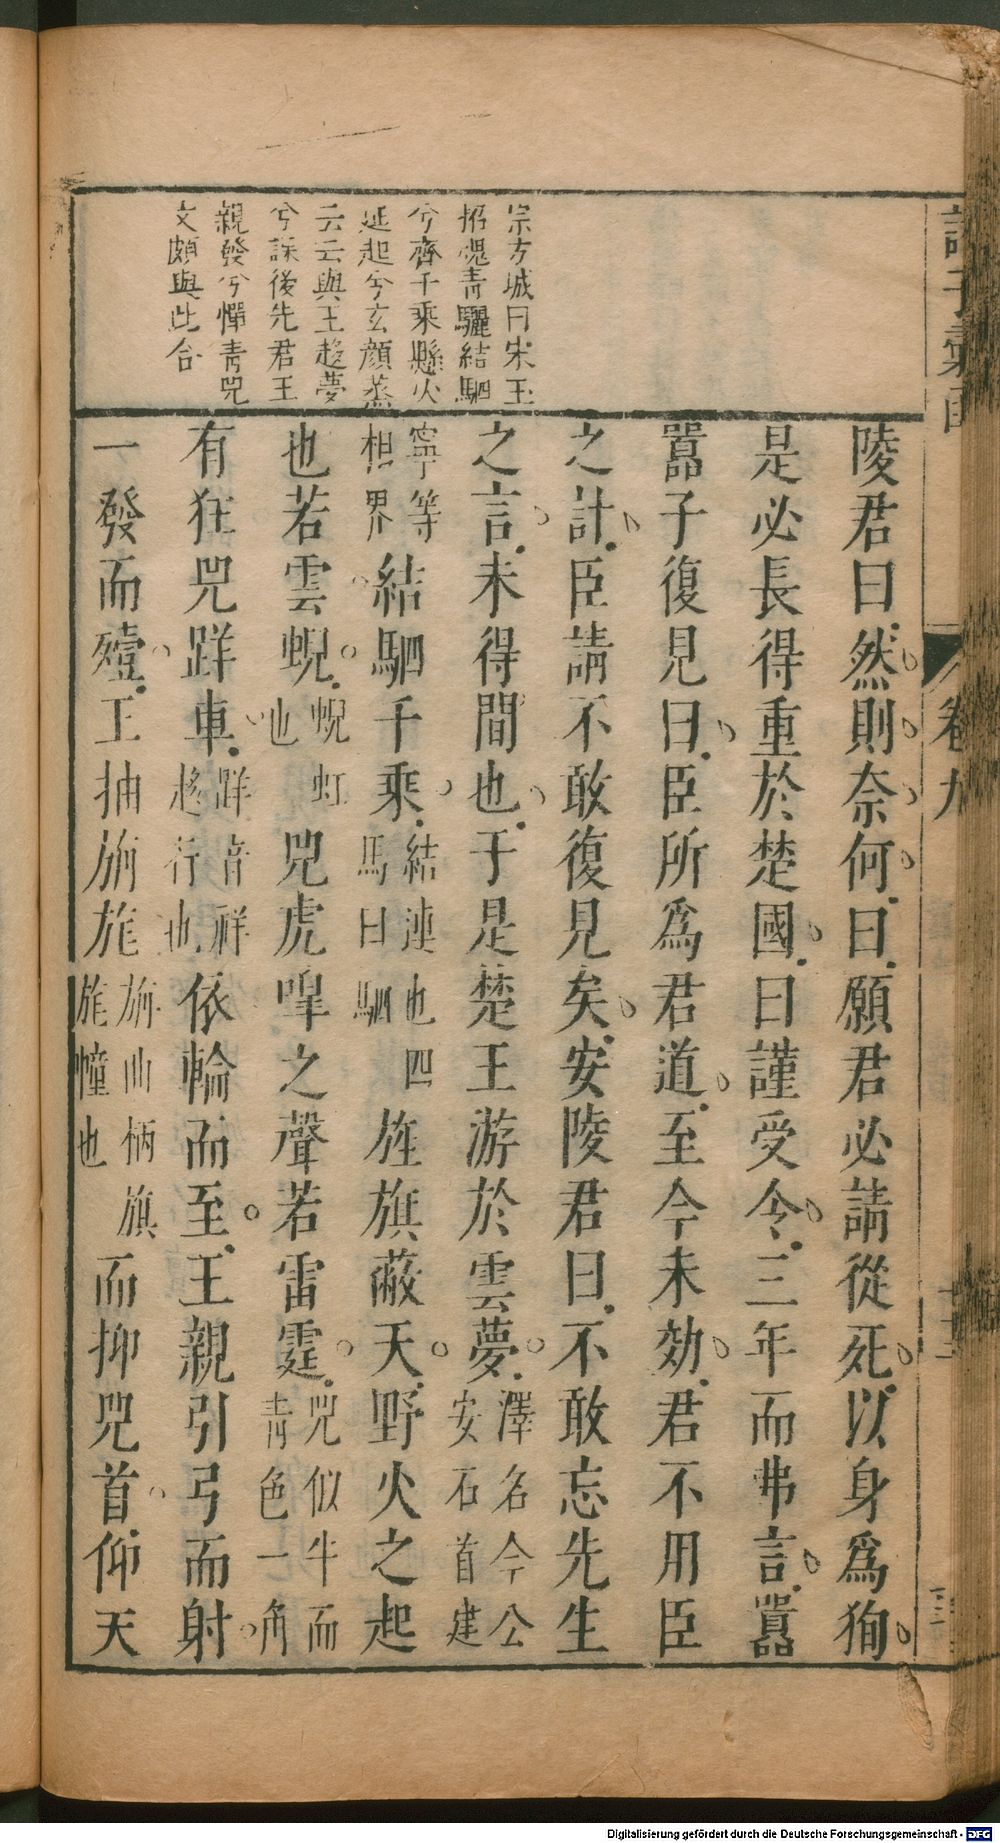 諸子彙函
卷九
宗方城曰宋玉
招魂青驪結駟
兮齊千乘縣火
延起兮玄顏蒸
云云與王趍夢
兮課後先君王
親發兮憚青兕
文頗與此合
陵君曰然則奈何曰願君必請從死以身爲狥
是必長得重於楚國曰謹受令三年而弗言囂
囂子復見曰臣所爲君道至今未効君不用臣
之計臣請不敢復見矣安陵君曰不敢忘先生
之言未得間也于是楚王游於雲夢澤名今公安石首建
寧等相界結駟千乘結連也四馬曰駟旌旗蔽天野火之起
也若雲蜺蜺虹也兕虎嘷之聲若雷霆兕似牛而青色一角
有狂兕車音祥趍行也依輪而至王親引弓而射
一發而殪王抽旃旄旃曲柄旗旄幢也而抑兕首仰天
Digitalisierung gefördert durch die Deutsche Forschungsgemeinschaft - DFG